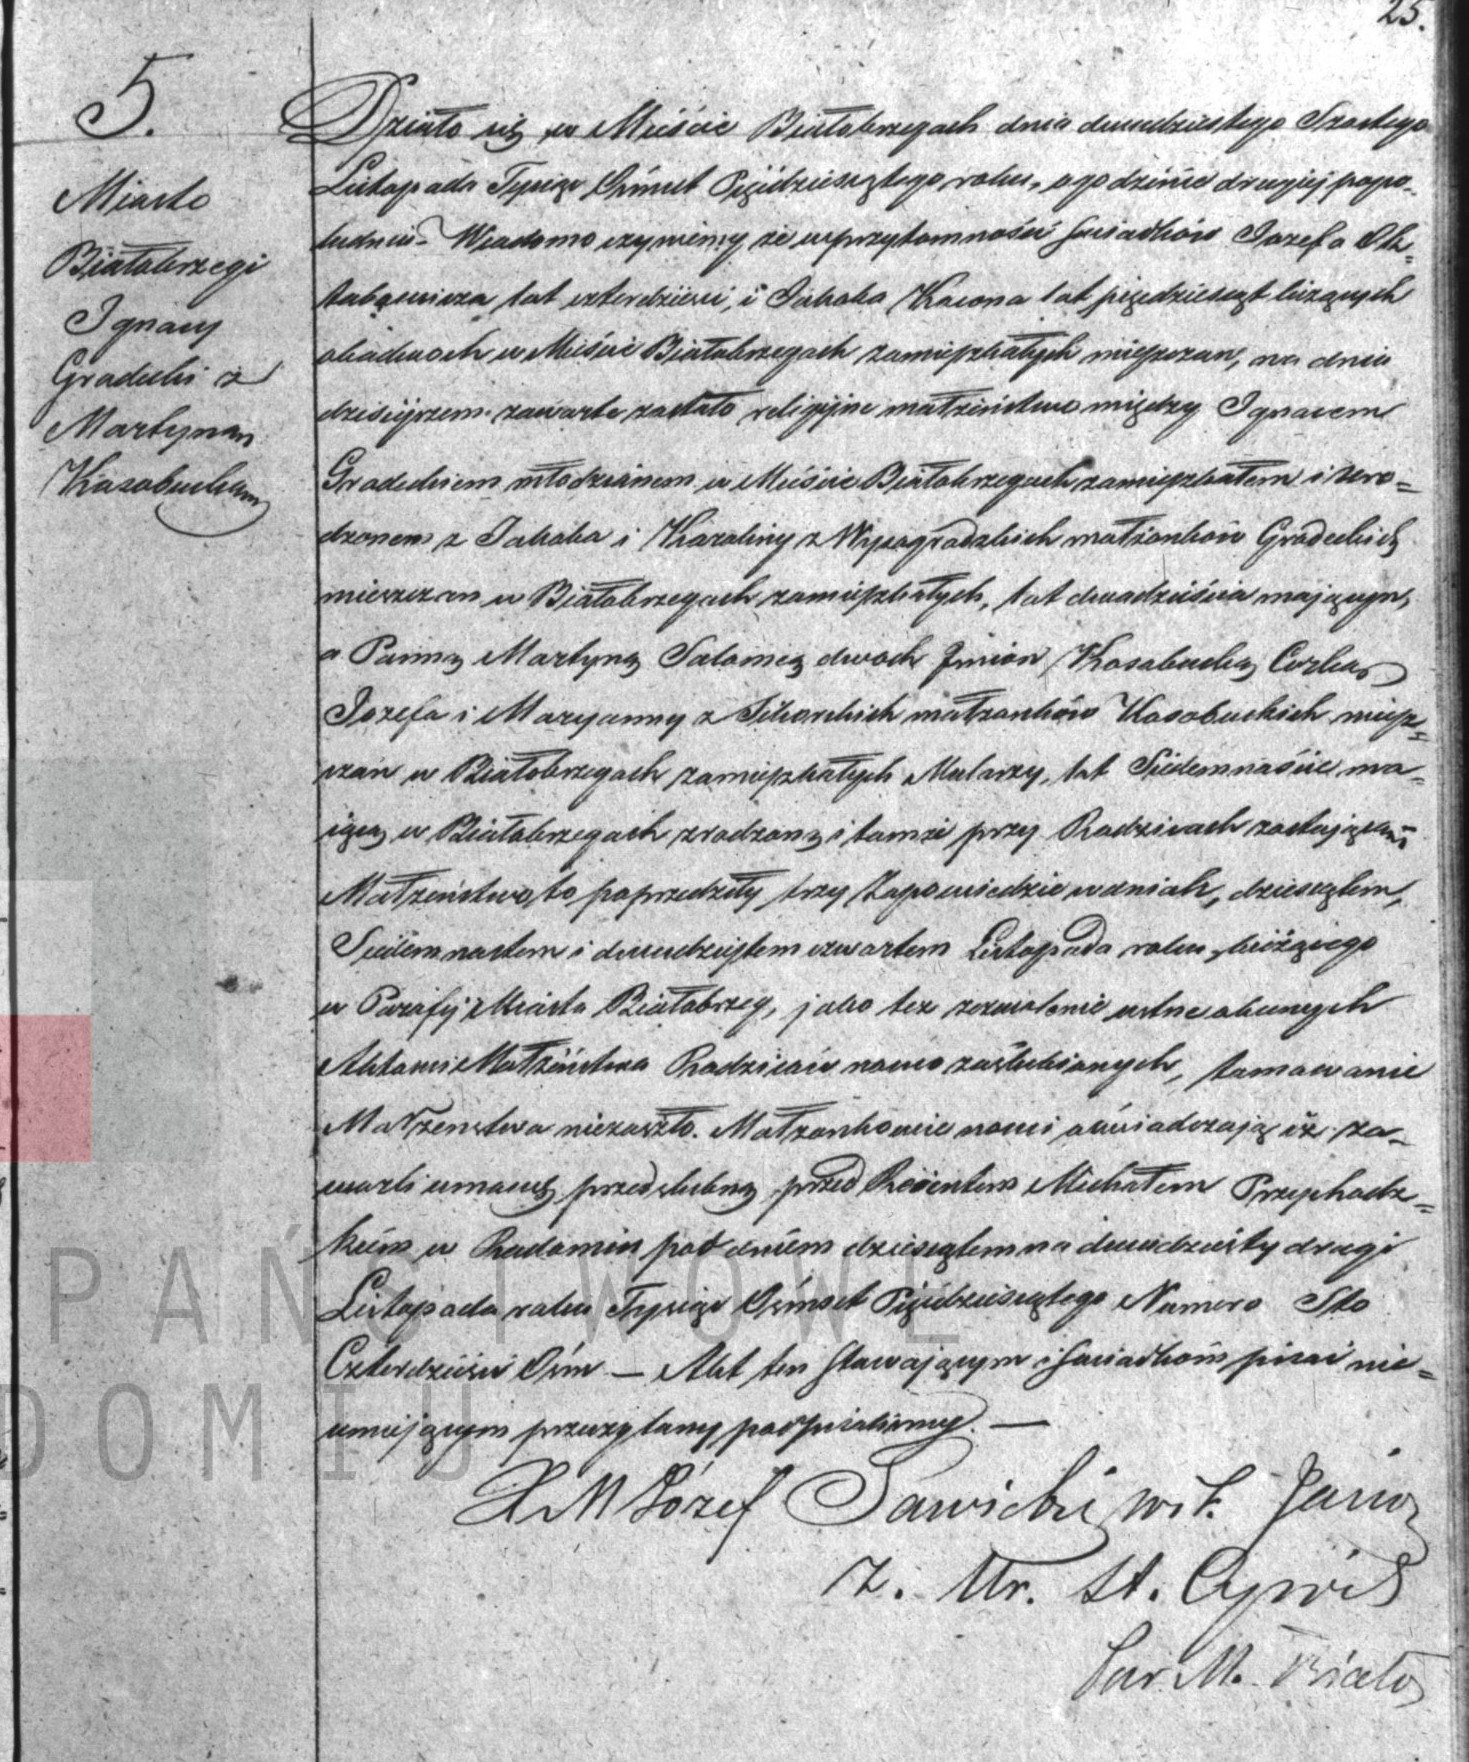 25.
5.
Miasto
Białobrzegi
Ignacy
Gradecki z
Martynan
Kosobuckan
Działo się w Mieście Białobrzegach dnia dwudziestego Szostego
Listopada Tysiąc Ośmset Pięćdziesiątego roku, o godzinie drugiej popo-
łudniu - Wiadomo czyniemy że w przytomności świadków Jozefa
lat czterdzieści, i Jakoba Kacona lat pięćdziesiąt liczących
obadwoch w Mieście Białobrzegach zamieszkałych mieszczan, na dniu
dzisiejszem zawarte zostało religijne małżeństwo między Ignacem
Gradeckiem młodzianem w Mieście Białobrzegach zamieszkałem i uro=
dzonem z Jakoba i Karoliny z małżonków Gradeckich
mieszczan w Białobrzegach zamieszkałych, lat dwadzieścia mającym,
a Panną Martyną Salomeą dwoch Jmion Kosobucką Corką
Jozefa i Maryanny z małżonków Kosobuckich miesz=
czan w Białobrzegach zamieszkałych Mularzy, lat Siedemnaście ma-
iącą w Białobrzegach zrodzoną i tamże przy Rodzicach zostającą
Małżeństwo to poprzedziły trzy Zapowiedzie w dniach, dziesiątem,
Siedemnastem i dwudziestem czwartem Listopada roku bieżącego
w Parafij Miasta Białobrzeg, jako też zezwolenie ustne obecnych
Aktowi Małżeństwa Rodziców nowo zaślubionych, tamowanie
Małżenstwa niezaszło. Małżonkowie nowi oświadczają iż za-
warli umowę przedslubną przed Rejentem Michałem Przychodz=
kiem w Radomiu pod dniem dziesiątem na dwudziesty drugi
Listopada roku Tysiąc Ośmset Pięćdziesiątego Numero Sto
Czterdzieści Ośm — Akt ten Stawającym i świadkom pisać nie=
umiejącym przeczytany podpisaliśmy. —
X M Józef Sawicki wik. Jasio
z. Ur. St. Cywil
Par. M. Biało
PAŃSTWOWE
DOMIU